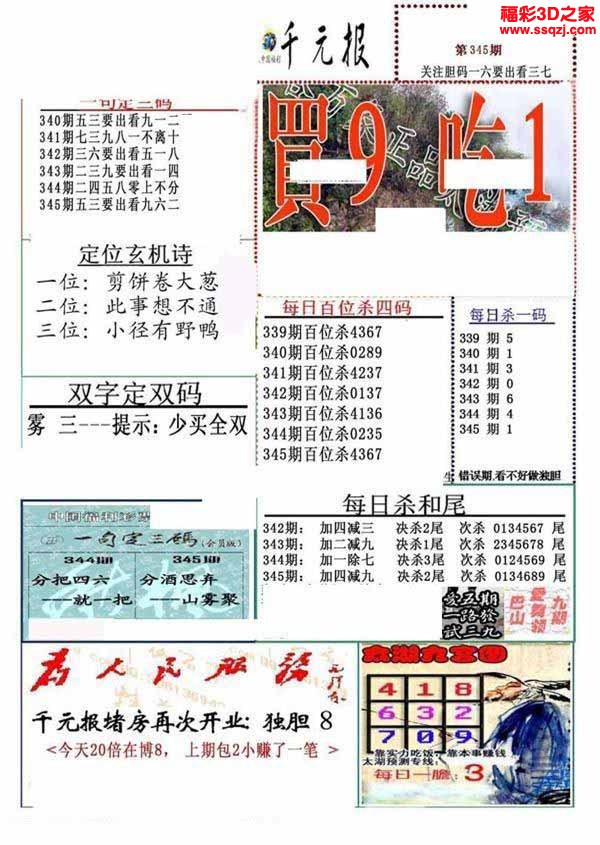 福彩3D之家
www.ssqzj.com
千元报
第345期
关注胆码一六要出看三七
一句定三码
340期五三要出看九一二
341期七三九八一不离十
342期三六要出看五一八
343期二三九要出看一四
344期二四五八零上不分
345期五三要出看九六二
買9 吃1
定位玄机诗
一位: 剪饼卷大葱
二位: 此事想不通
三位: 小径有野鸭
每日百位杀四码
339期百位杀4367
340期百位杀0289
341期百位杀4237
342期百位杀0137
343期百位杀4136
344期百位杀0235
345期百位杀4367
每日杀一码
339 期 5
340 期 1
341 期 3
342 期 0
343 期 6
344 期 4
345 期 1
错误期,看不好做独胆
双字定双码
雾 三---提示: 少买全双
中国福利彩票
一句定三码(会员版)
344期
分把四六
——就一把
345期
分酒思弃
——山雾聚
每日杀和尾
342期: 加四减三 决杀2尾 次杀 0134567 尾
343期: 加二减九 决杀1尾 次杀 2345678 尾
344期: 加一除七 决杀3尾 次杀 0124569 尾
345期: 加四减九 决杀2尾 次杀 0134689 尾
爱五期
一路发
试三九
九期
巴山
为人民服务
千元报堵房再次开业: 独胆 8
<今天20倍在博8, 上期包2小赚了一笔 >
太湖九宫图
4 1 8
6 3 2
7 0 9
靠实力吃饭,靠本事赚钱
太湖预测专线:
每日一胆: 3